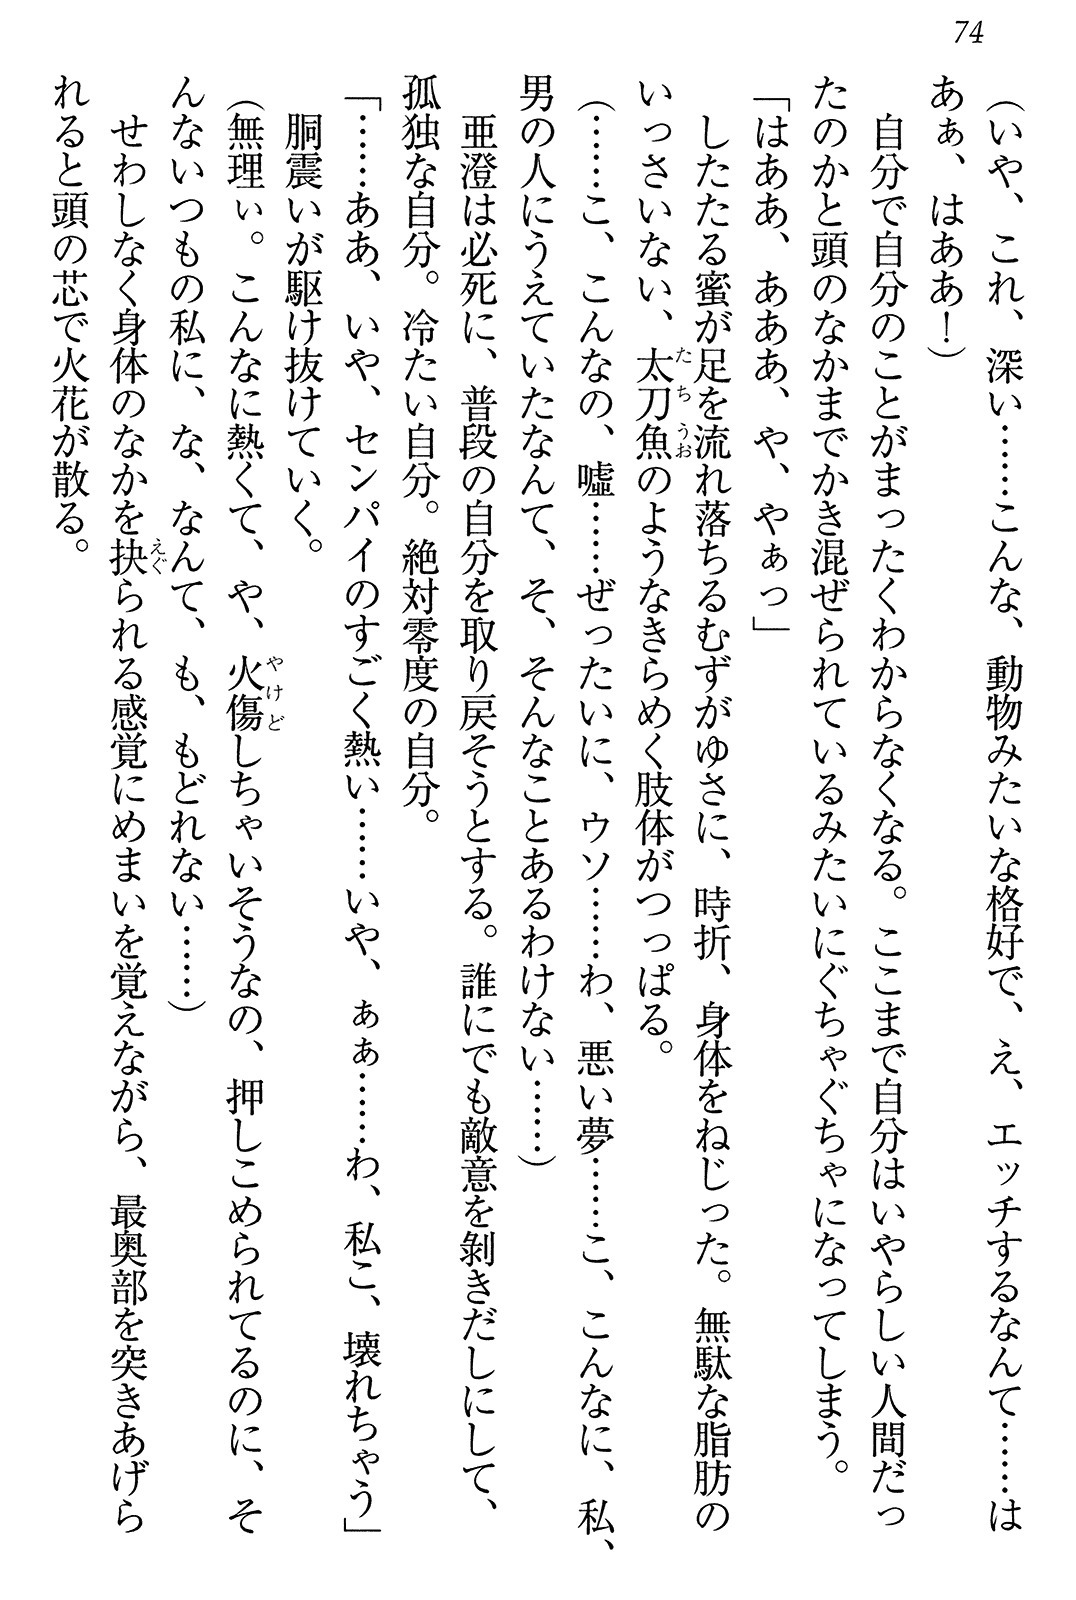 74
（いや、これ、深い……こんな、動物みたいな格好で、え、エッチするなんて……は
あぁ、はああ！）
自分で自分のことがまったくわからなくなる。ここまで自分はいやらしい人間だっ
たのかと頭のなかまでかき混ぜられているみたいにぐちゃぐちゃになってしまう。
「はああ、あああ、や、やぁっ」
したたる蜜が足を流れ落ちるむずがゆさに、時折、身体をねじった。無駄な脂肪の
いっさいない、太刀魚のようなきらめく肢体がつっぱる。
（……こ、こんなの、嘘……ぜったいに、ウソ……わ、悪い夢……こ、こんなに、私、
男の人にうえていたなんて、そ、そんなことあるわけない……）
亜澄は必死に、普段の自分を取り戻そうとする。誰にでも敵意を剝きだしにして、
孤独な自分。冷たい自分。絶対零度の自分。
「……ああ、いや、センパイのすごく熱い……いや、ぁぁ……わ、私こ、壊れちゃう」
胴震いが駆け抜けていく。
（無理ぃ。こんなに熱くて、や、火傷しちゃいそうなの、押しこめられてるのに、そ
んないつもの私に、な、なんて、も、もどれない……）
せわしなく身体のなかを抉られる感覚にめまいを覚えながら、最奥部を突きあげら
れると頭の芯で火花が散る。